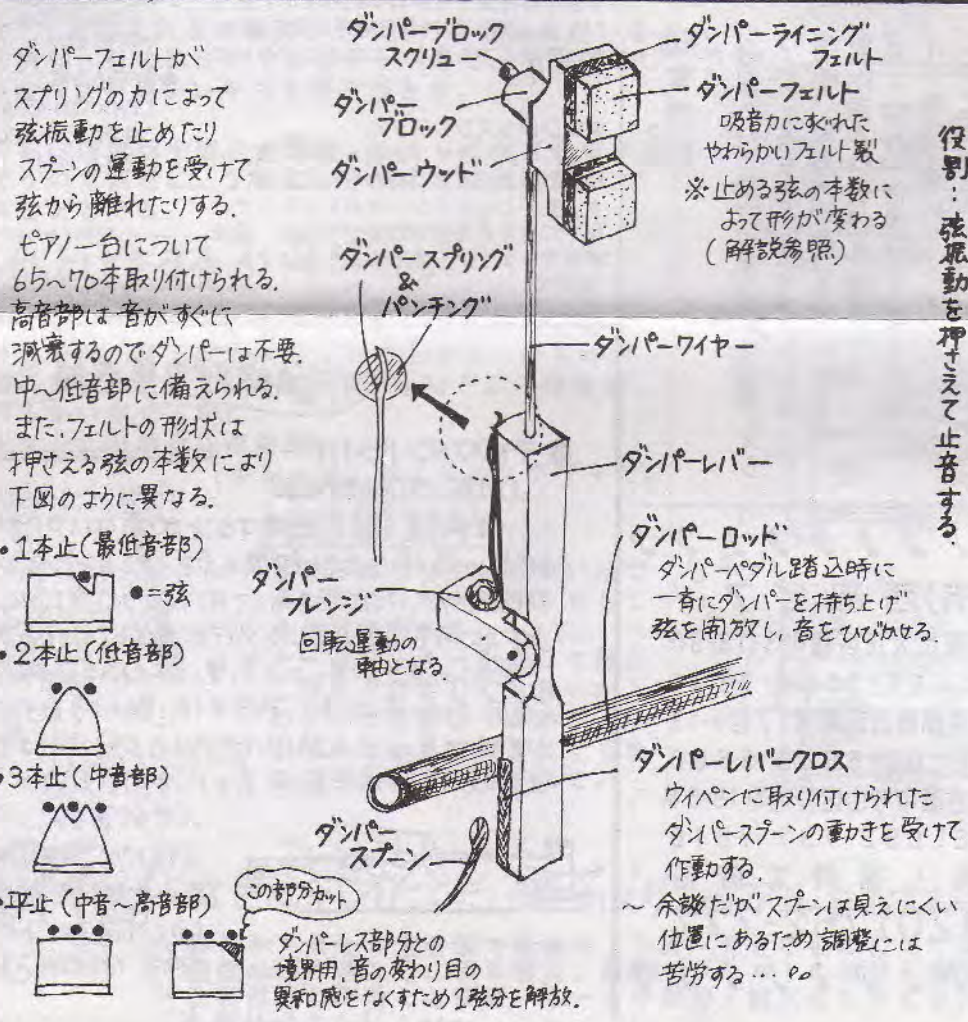 ダンパーフェルトが
スプリングの力によって
弦振動を止めたり
スプーンの運動を受けて
弦から離れたりする.
ピアノ一台について
65〜70本取り付けられる.
高音部は音がすぐに
減衰するのでダンパーは不要.
中〜低音部に備えられる.
また、フェルトの形状は
押さえる弦の本数により
下図のように異なる.
・1本止(最低音部)
●=弦
・2本止(低音部)
・3本止(中音部)
・平止(中音〜高音部)
この部分カット
ダンパーレス部分との
境界用、音の変わり目の
異和感をなくすため1弦分を解放.
ダンパーブロック
スクリュー
ダンパー
ブロック
ダンパーウッド
ダンパースプリング
&
パンチング
ダンパー
フレンジ
回転運動の
軸となる
ダンパー
スプーン
ダンパーライニング
フェルト
ダンパーフェルト
吸音力にすぐれた
やわらかいフェルト製
※止める弦の本数に
よって形が変わる
(解説参照)
ダンパーワイヤー
ダンパーレバー
ダンパーロッド
ダンパーペダル踏込時に
一斉にダンパーを持ち上げ
弦を開放し、音をひびかせる.
ダンパーレバークロス
ウイペンに取り付けられた
ダンパースプーンの動きを受けて
作動する.
〜余談だがスプーンは見えにくい
位置にあるため調整には
苦労する…
役割:弦振動を押さえて止音する.